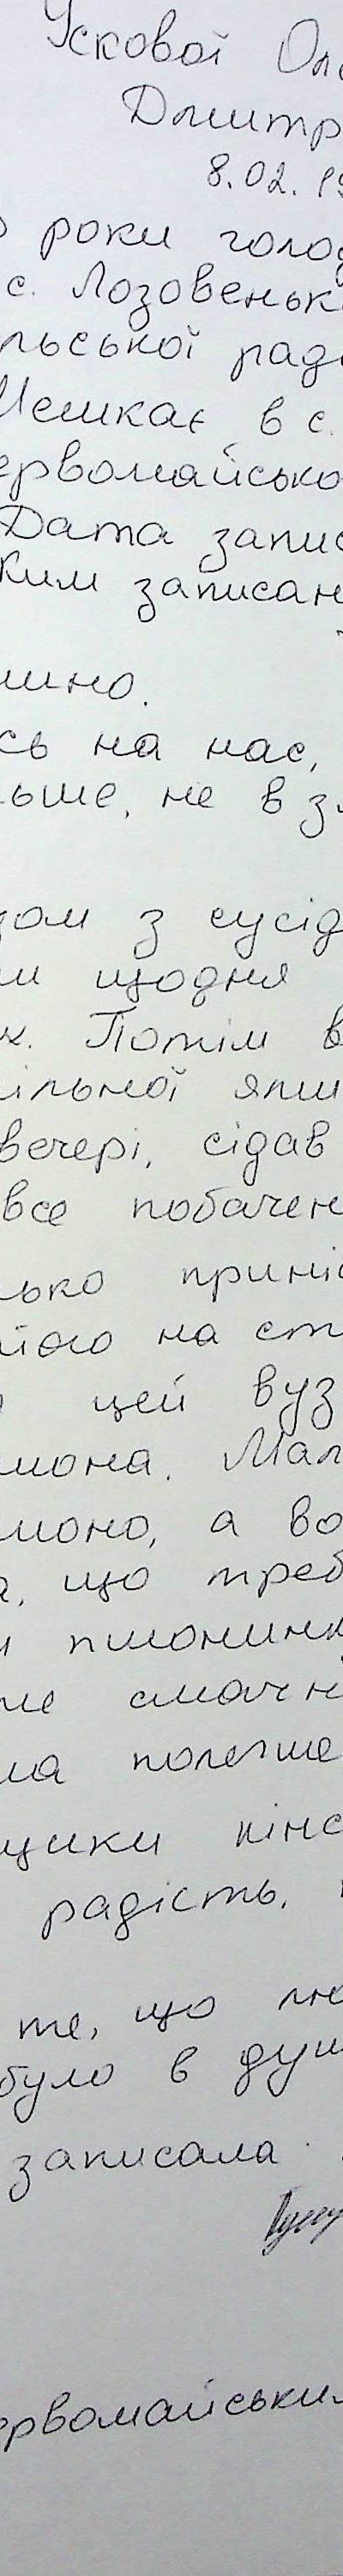 Ускової Ол
Дмитр
8.02.19
роки голод
с. Лозовеньк
льської рад
Мешкає в с.
ервомайсько
Дата запис
ким записан
шно.
сь на нас,
ьше, не в з
зом з сусід
ли щодня
к. Потім в
ільної яли
вечері, сідав
все побачен
лько приніс
його на ст
цей вуз
шона. Мал
шоно, а во
а, що треб
и пшонинк
же смачн
ла полегше
щики пінс
радість.
те, що лю
було в душ
записала
ервомайський